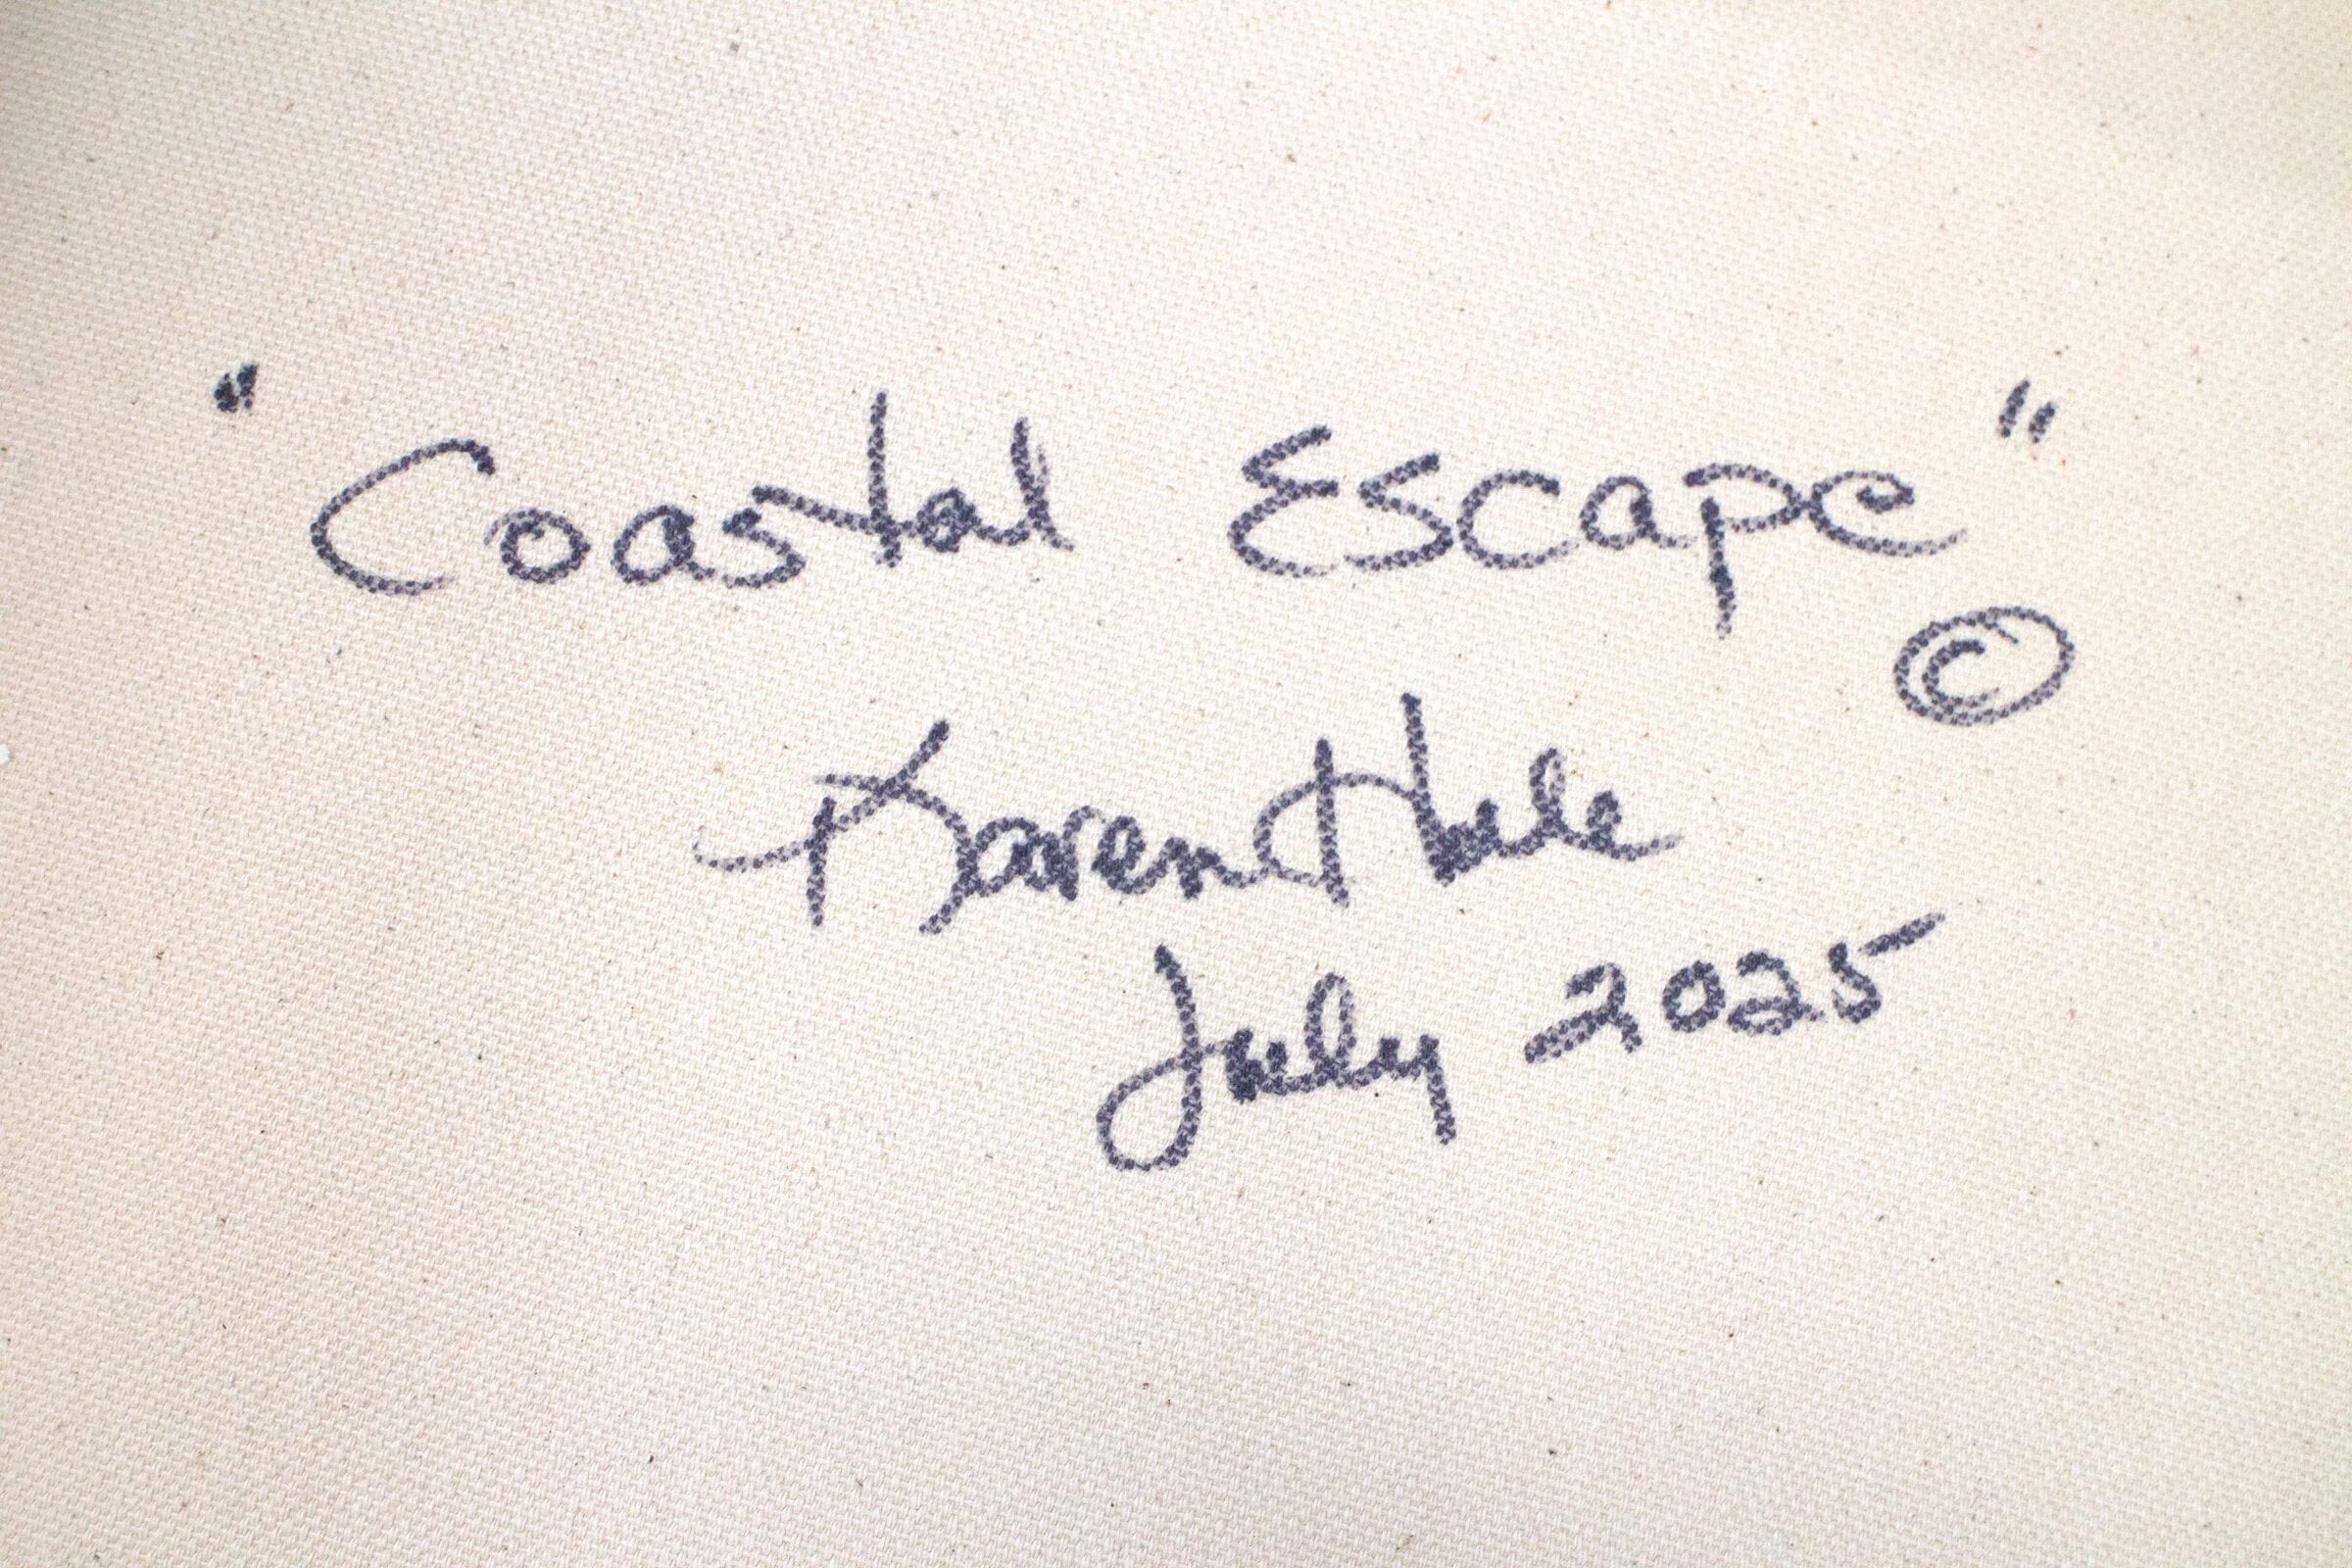 "Coastal Escape"
©
Karen Hale
July 2025